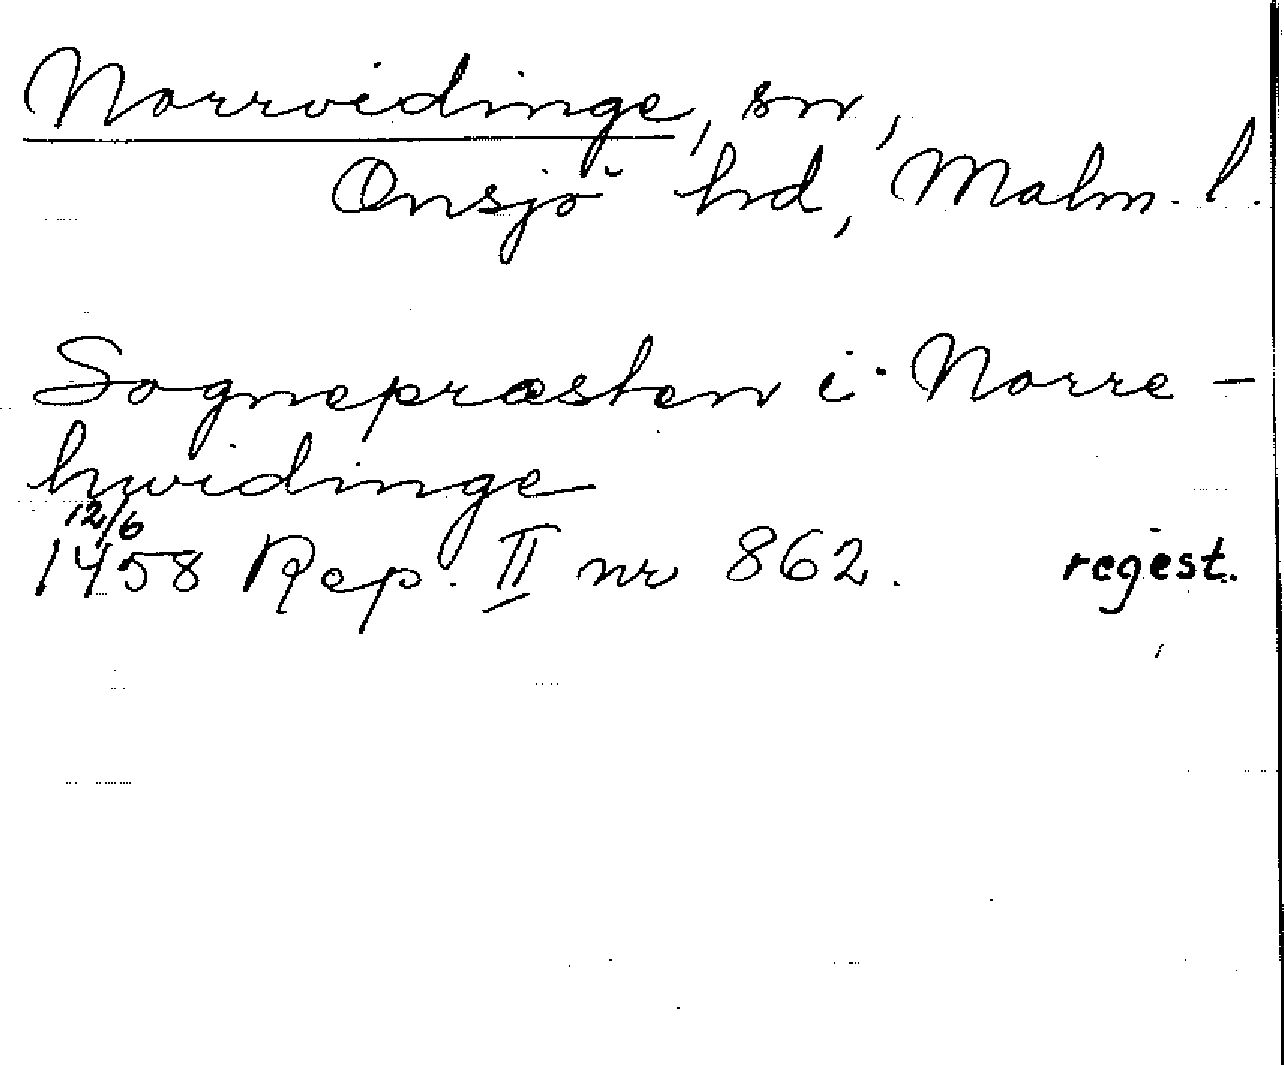 Norrvidinge, sn,
Onsjö hd, Malm. l.
Sognepræsten i Norre-
hwidinge
12/6
1458 Rep. II nr 862. regest.